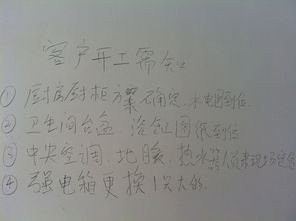 客户开工需知
① 厨房厨柜方案确定.水电图到位.
② 卫生间台盆.浴缸图纸到位
③ 中央空调.地暖.热水器人员来现场定位
④ 强电箱更换1只大的.